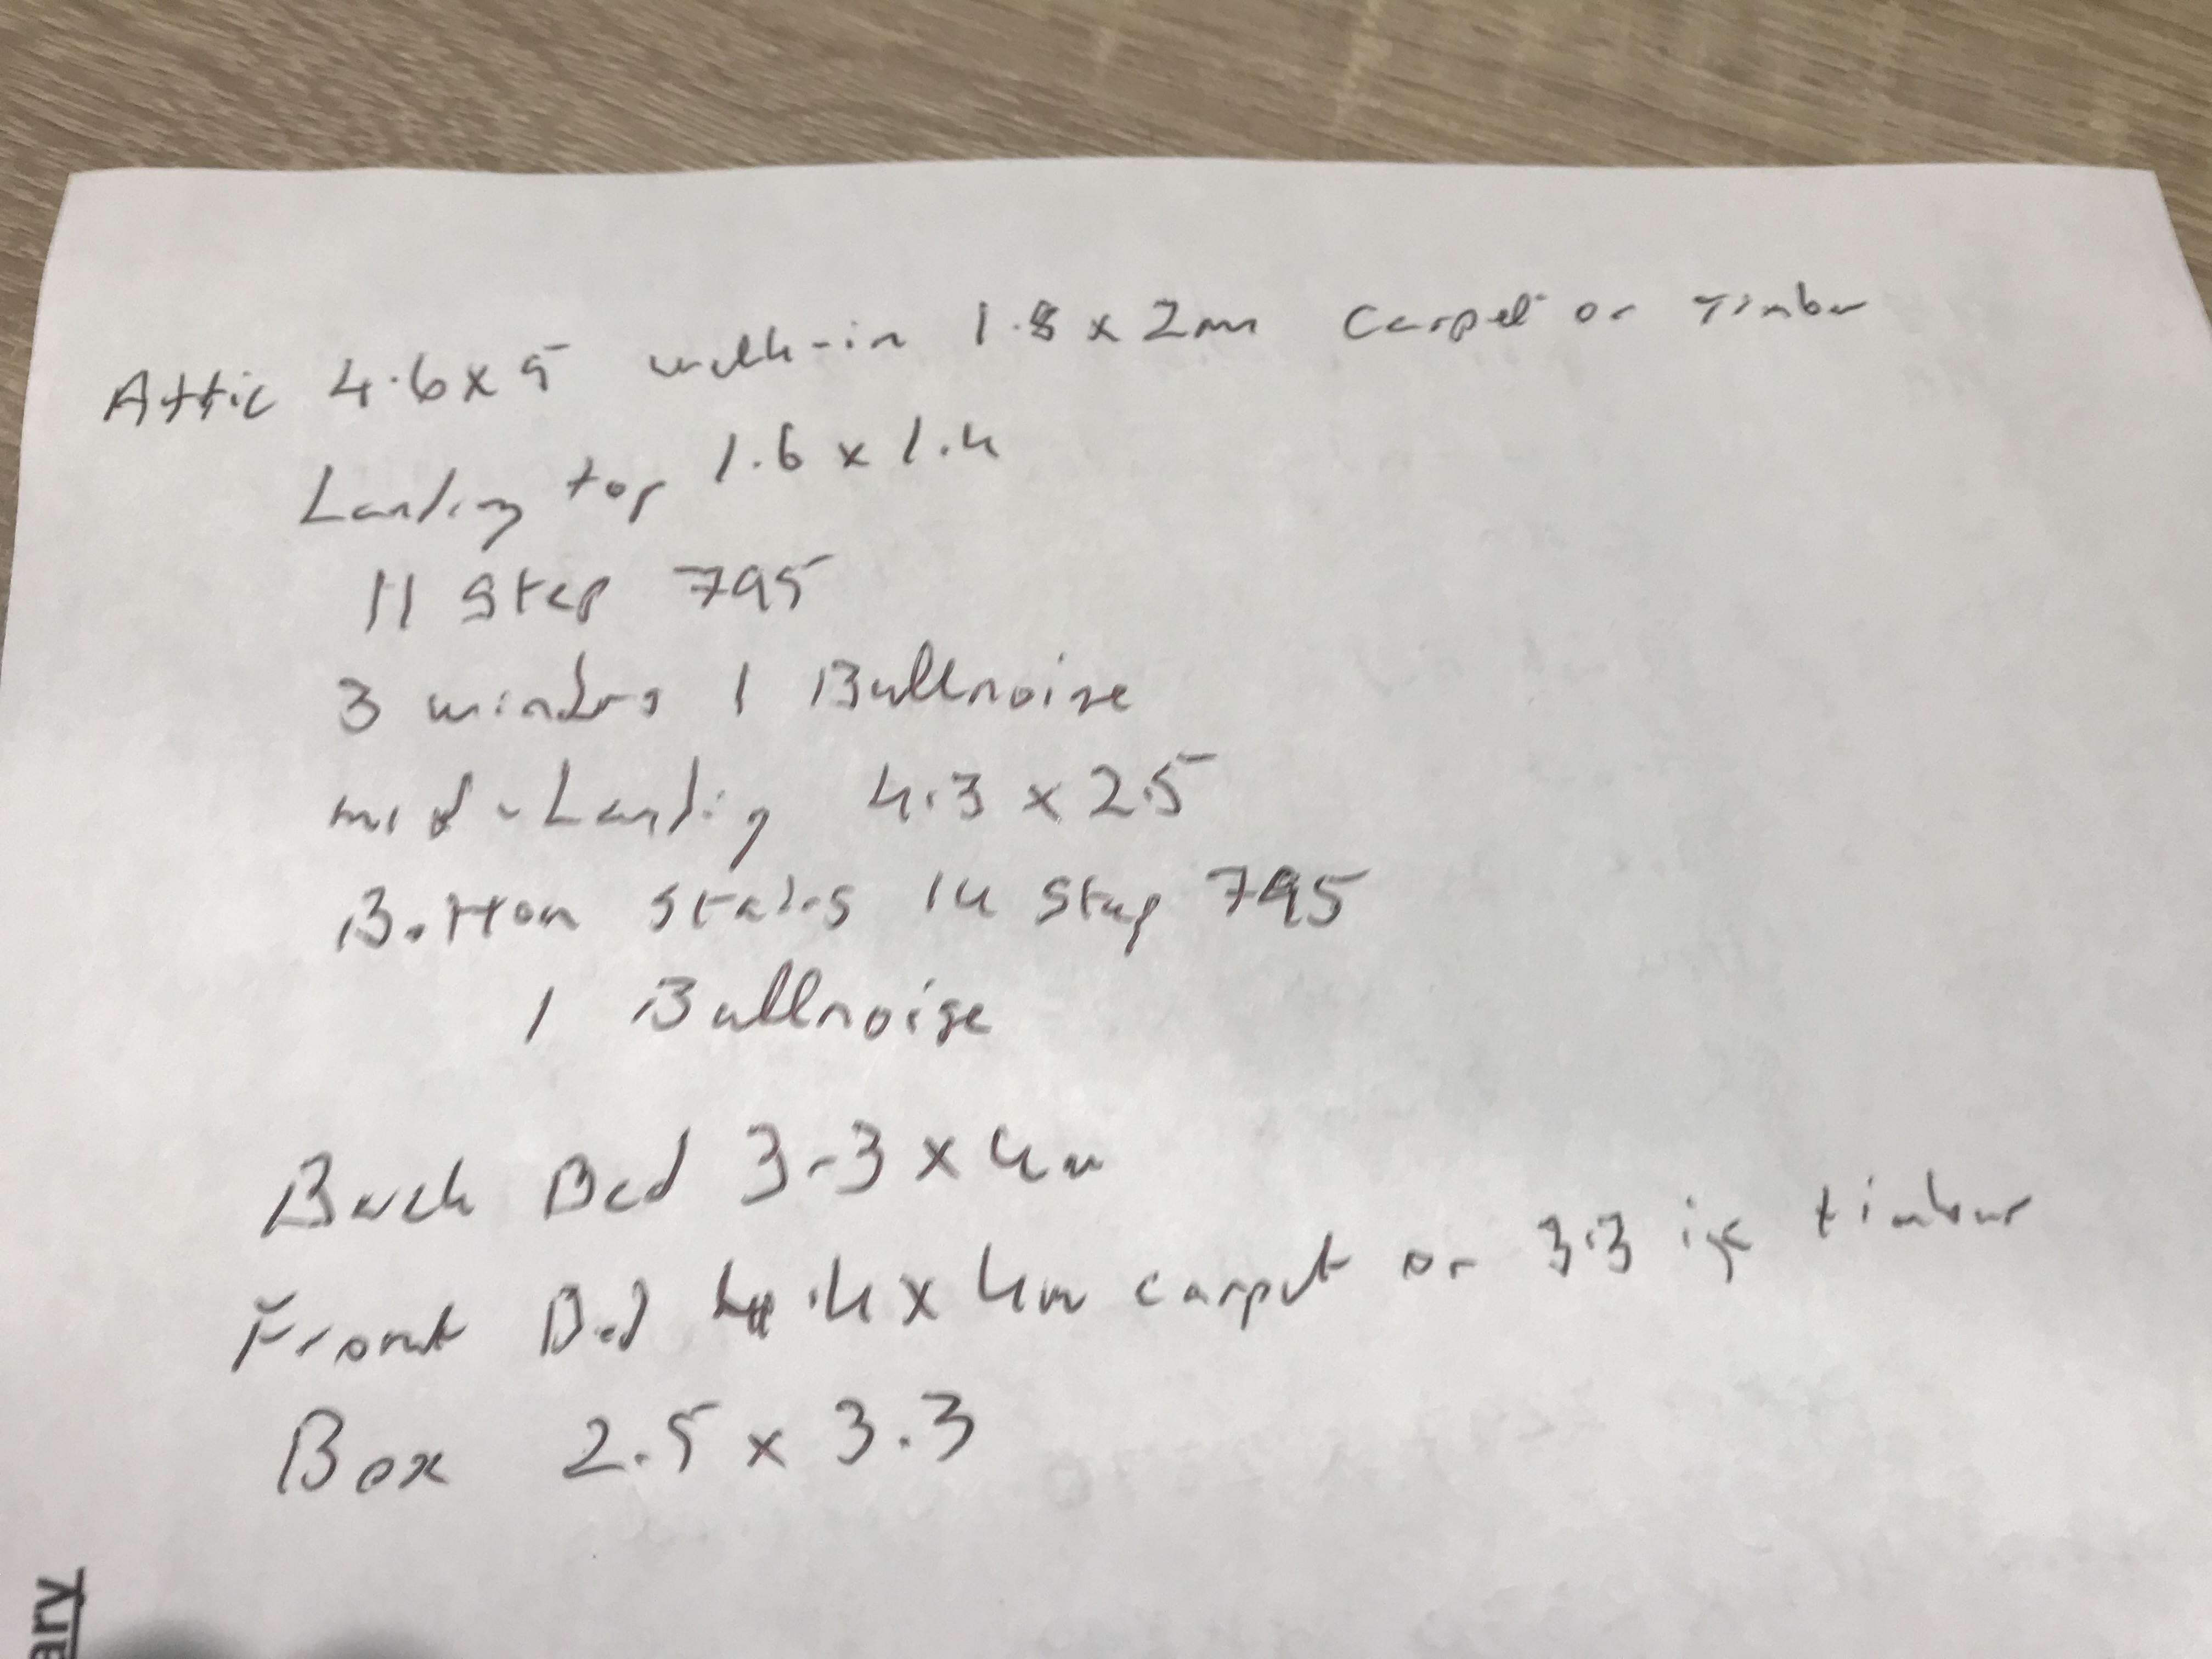 Attic 4.6 x 5 walk-in 1.8 x 2m Carpet or Timber
Landing top 1.6 x 1.4
11 Step 795
3 winders 1 Bullnoise
mid-Landing 4.3 x 2.5
Bottom stairs 14 Step 795
1 Bullnoise
Back Bed 3.3 x 4m
Front Bed 4.4 x 4m carpet or 3.3 if timber
Box 2.5 x 3.3
ary